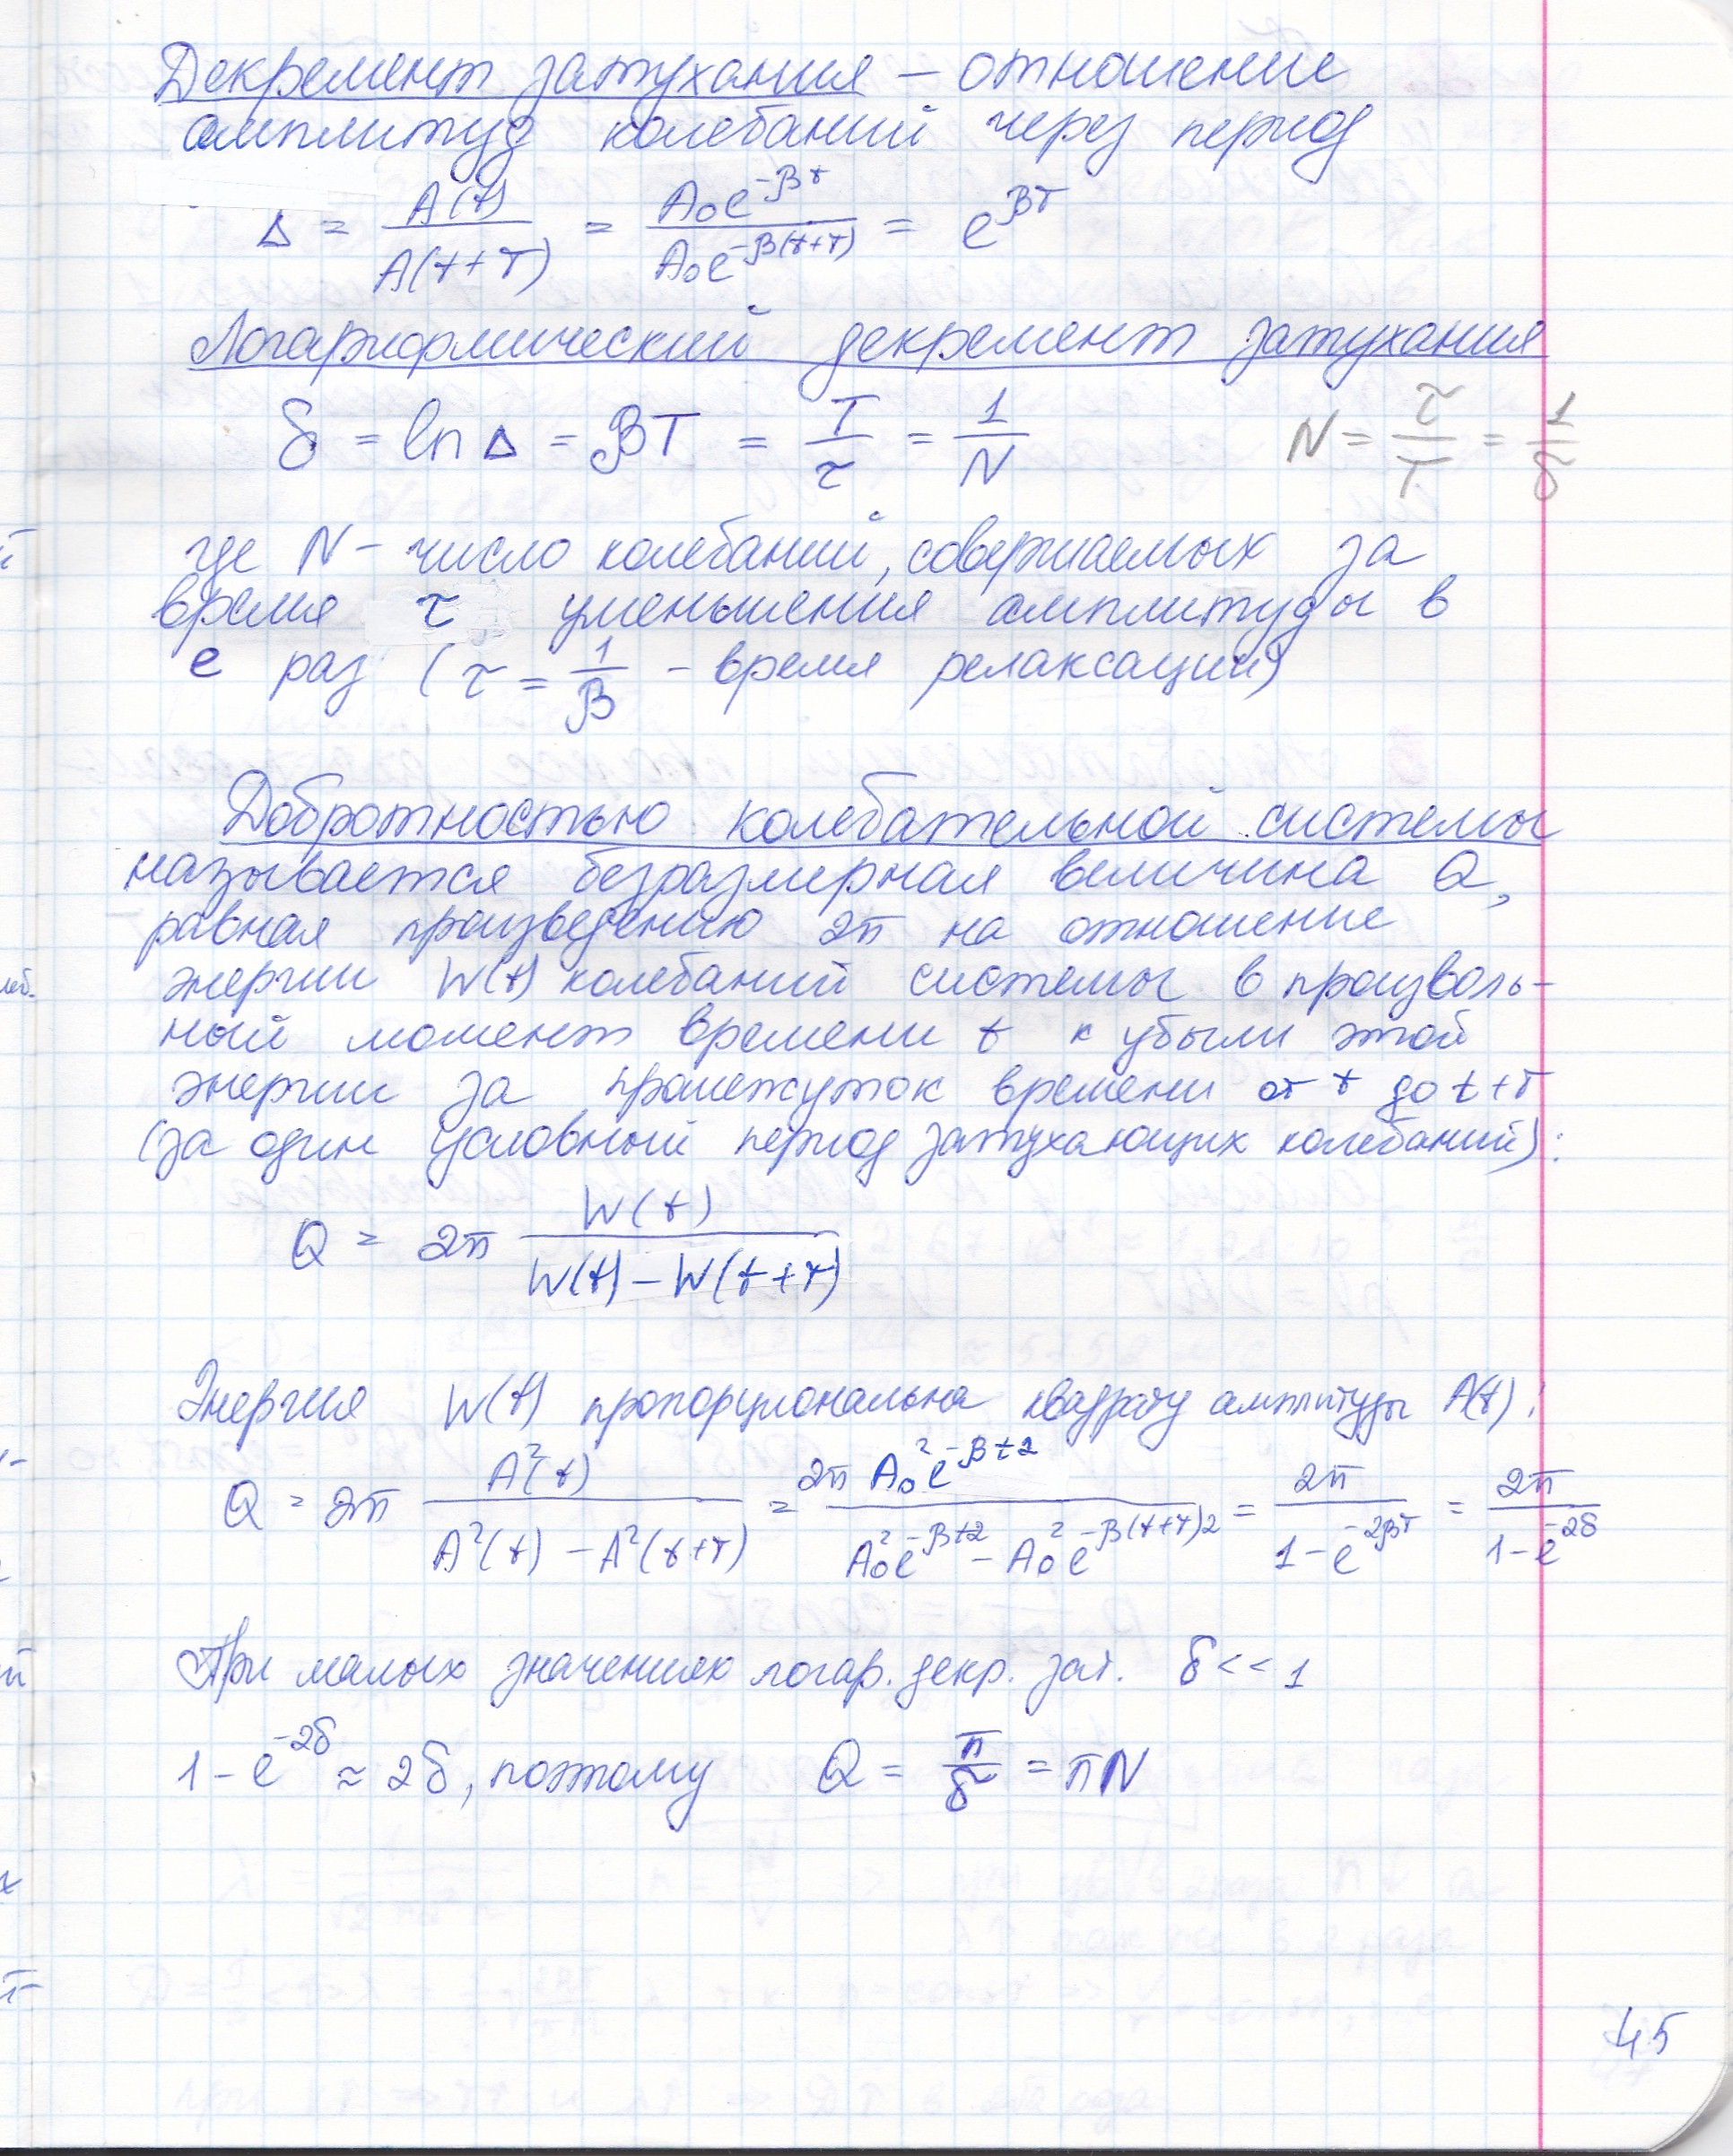 Декремент затухания – отношение
амплитуд колебаний через период
Δ = A(t) / A(t+T) = A₀e^(-βt) / A₀e^(-β(t+T)) = e^(βT)
Логариформический декремент затухания
δ = ln Δ = βT = T/τ = 1/N N = τ/T = 1/δ
где N – число колебаний, совершаемых за
время τ уменьшения амплитуды в
е раз (τ = 1/β – время релаксации)
Добротностью колебательной системы
называется безразмерная величина Q,
равная произведению 2π на отношение
энергии W(t) колебаний системы в произволь-
ный момент времени t к убыли этой
энергии за промежуток времени от t до t+T
(за один условный период затухающих колебаний):
Q = 2π W(t) / (W(t) – W(t+T))
Энергия W(t) пропорциональна квадрату амплитуды A(t):
Q = 2π A²(t) / (A²(t) – A²(t+T)) = 2π A₀²e^(-βt2) / (A₀²e^(-βt2) – A₀²e^(-β(t+T)2)) = 2π / (1–e^(-2βT)) = 2π / (1–e^(-2δ))
При малых значениях логар. декр. зат. δ << 1
1 – e^(-2δ) ≈ 2δ, поэтому Q = π/δ = πN
45